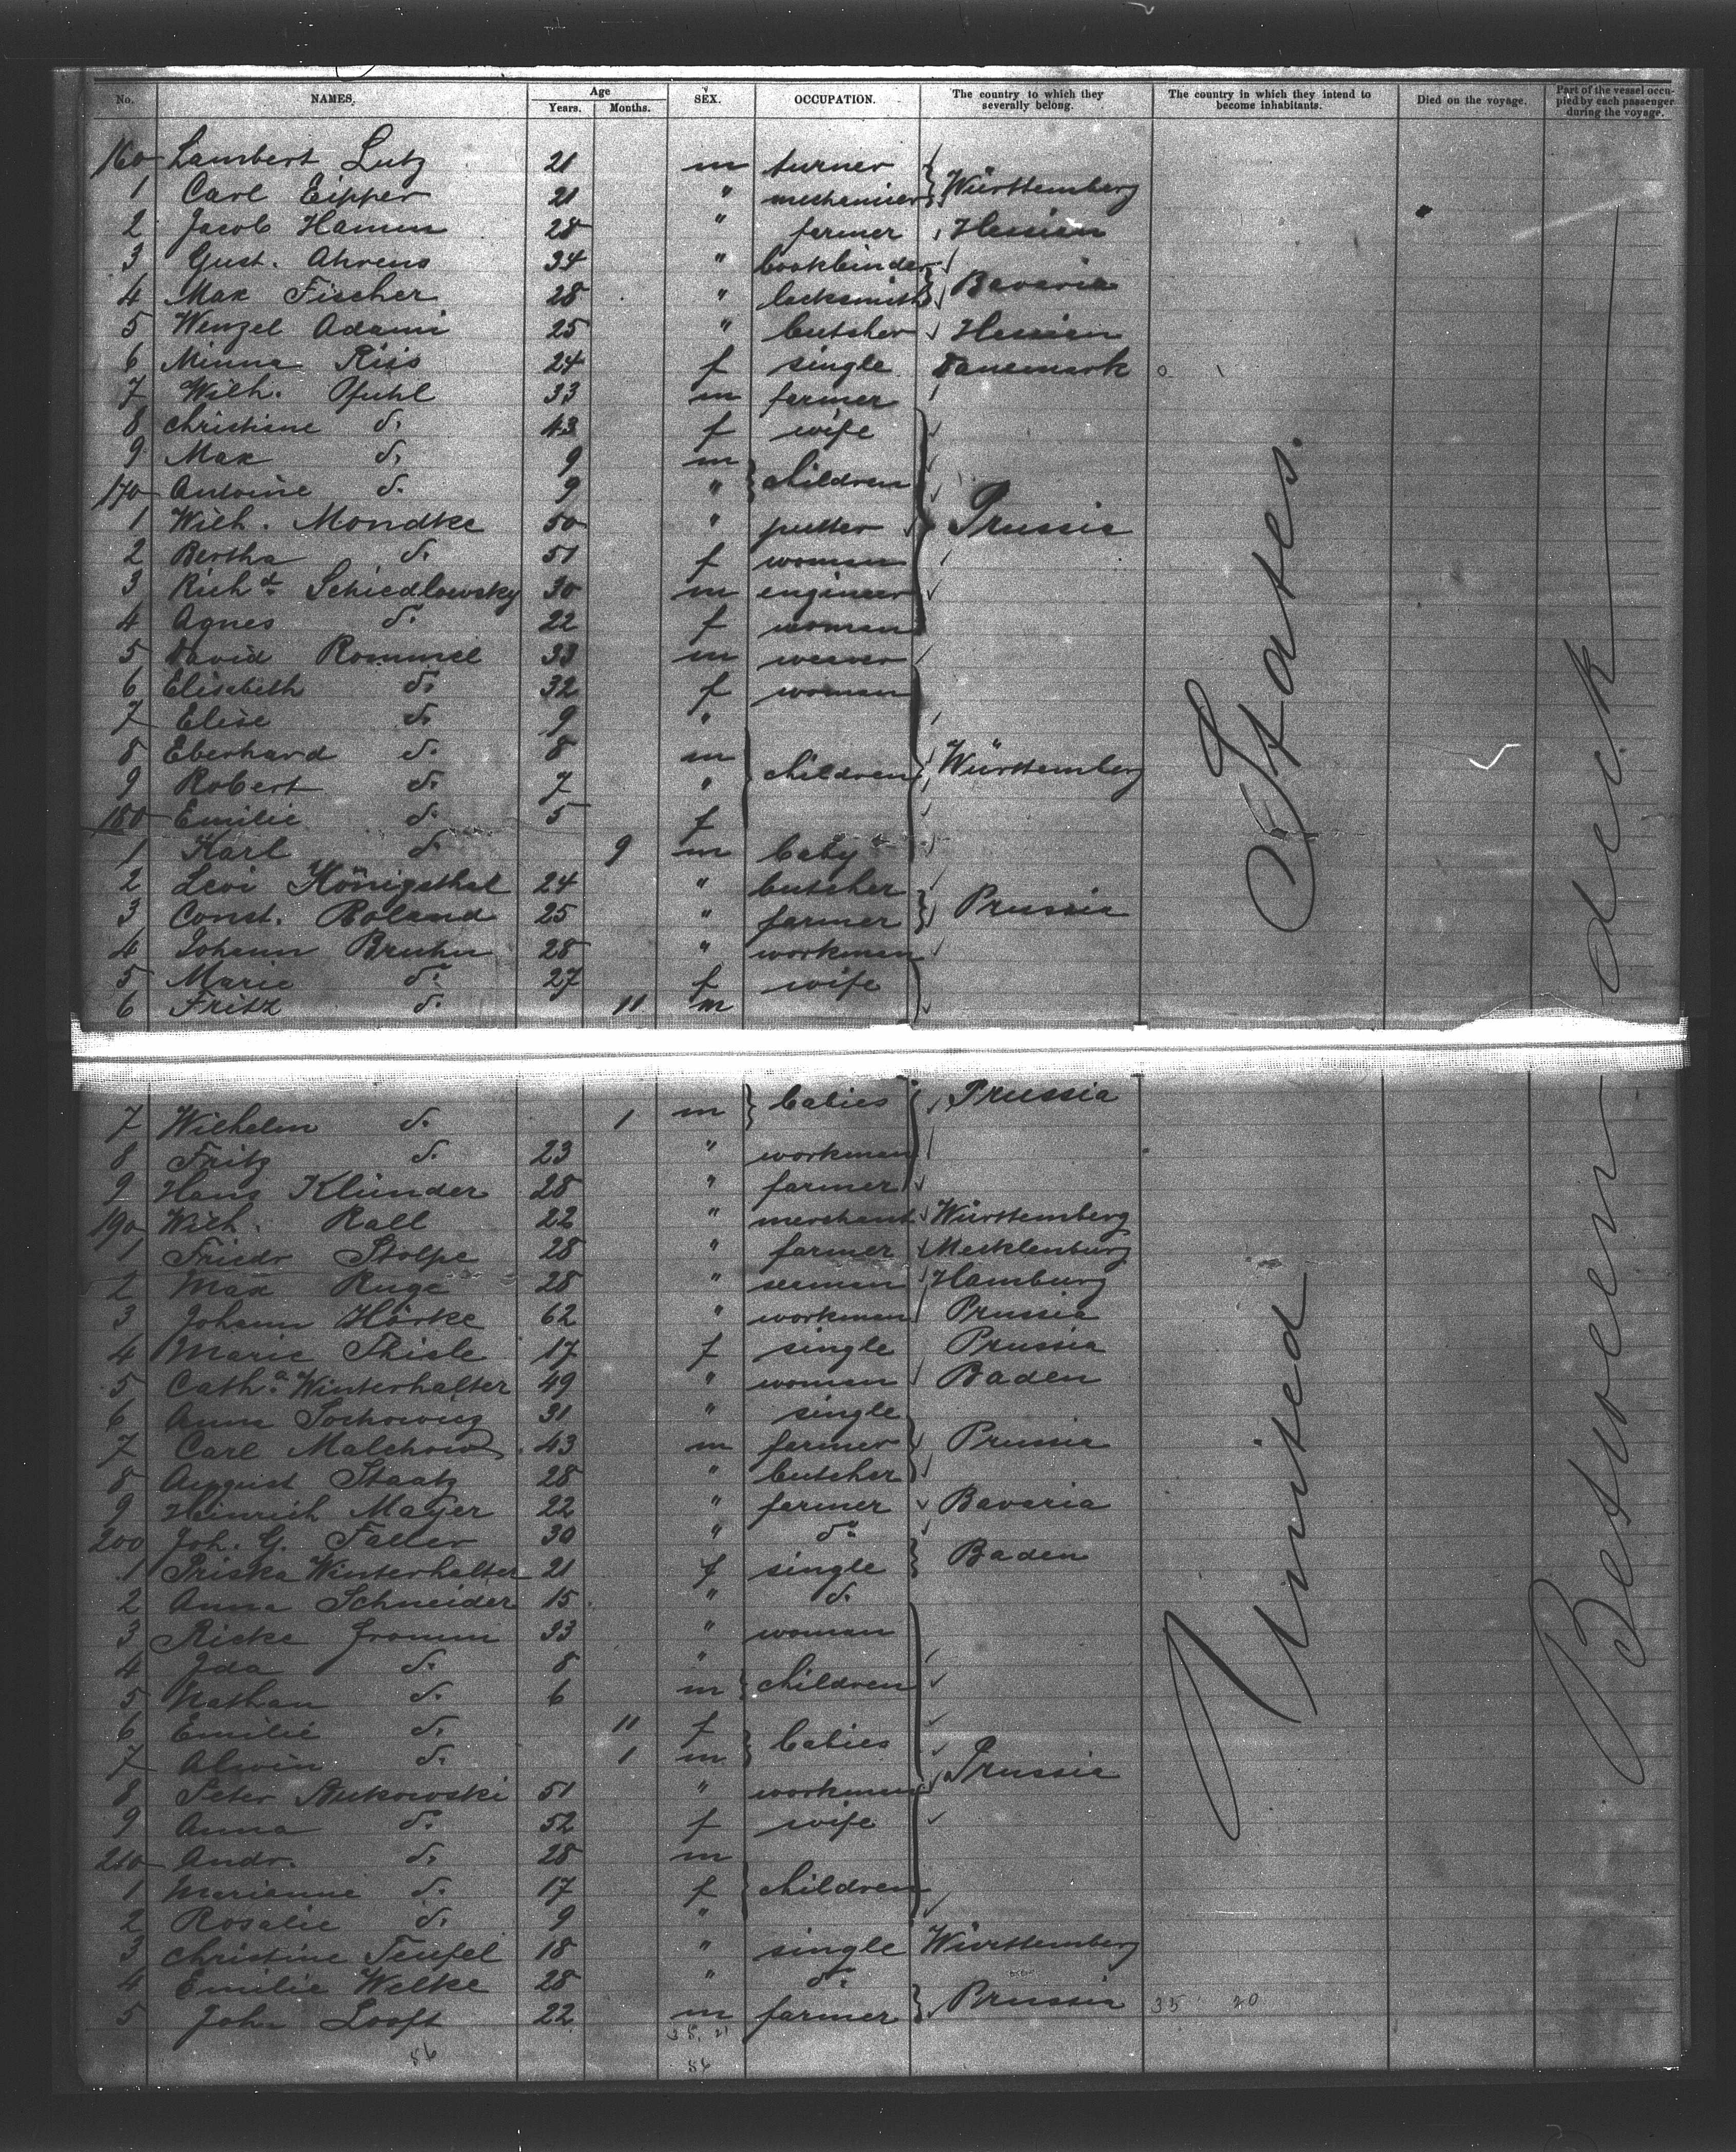 No. NAMES. Age Years. Months. SEX. OCCUPATION. The country to which they severally belong. The country in which they intend to become inhabitants. Died on the voyage. Part of the vessel occupied by each passenger during the voyage.
160 Lambert Lutz 21 m turner
1 Carl Eipper 21 " mechanicer } Württemberg
2 Jacob Hamm 28 " farmer Hessien
3 Gust. Ahrens 34 " bookbinder
4 Max Fischer 28 " locksmith } Bavaria
5 Wenzel Adami 25 " butcher Hessien
6 Minna Riis 24 f single Danemark
7 Wilh. Pfuhl 33 m farmer
8 Christine do. 43 f wife
9 Max do. 9 m
170 Antoine do. 9 " } children
1 Wilh. Mondke 50 " putter } Prussia
2 Bertha do. 51 f woman
3 Richd. Schiedlowsky 30 m engineer
4 Agnes do. 22 f woman
5 David Rommel 33 m weaver
6 Elisabeth do. 32 f woman
7 Elise do. 9 "
8 Eberhard do. 8 m
9 Robert do. 7 " } children } Württemberg
180 Emilie do. 5 f
1 Karl do. 9 m baby
2 Levi Königsthal 24 " butcher
3 Const. Roland 25 " farmer } Prussia
4 Johann Bruhn 28 " workman
5 Marie do. 27 f wife
6 Fritz do. 11 m
7 Wilhelm do. 1 m } babies } Prussia
8 Fritz do. 23 " workman
9 Hans Klünder 28 " farmer
190 Wilh. Rall 22 " merchant Württemberg
1 Friedr Stolpe 28 " farmer Mecklenburg
2 Max Ruge 28 " seaman Hamburg
3 Johann Hörke 62 " workman Prussia
4 Marie Thiele 17 f single Prussia
5 Catha. Winterhalter 49 " woman Baden
6 Anna 31 " single
7 Carl Malchow 43 m farmer } Prussia
8 August Staatz 28 " butcher
9 Heinrich Mayer 22 " farmer Bavaria
200 Joh. G. Faller 30 " do.
1 Priska Winterhalter 21 f single } Baden
2 Anna Schneider 15 " do.
3 Ricke Fromm 33 " woman
4 Ida do. 8 "
5 Nathan do. 6 m } children
6 Emilie do. 11 f
7 Alwin do. 1 m } babies
8 Peter 51 " workman } Prussia
9 Anna do. 52 f wife
210 Andr. do. 28 m
1 Marianne do. 17 f } children
2 Rosalie do. 9 "
3 Christine Teufel 18 " single Württemberg
4 Emilie Welke 28 " do.
5 John Looft 22 m farmer } Prussia 35 20
56 35, 21
56
United States.
Between deck